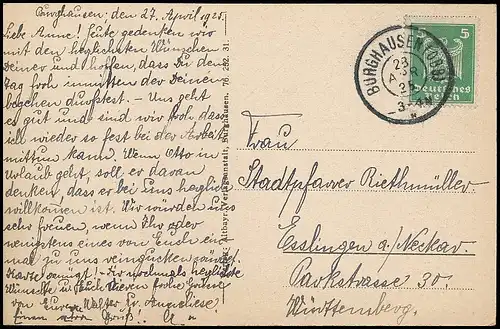 Burghausen, den 27. April 1925.
Liebe Anne! Heute gedenken wir
mit den herzlichsten Wünschen
Deiner und hoffen, dass Du den
Tag froh inmitten der Deinen
begehen durftest. - Uns geht
es gut und sind wir froh dass
ich wieder so fest bei der Arbeit
mittun kann. Wenn Otto in
Urlaub geht, soll er daran
denken, dass er bei uns herzlich
willkommen ist. Wir würden uns
sehr freuen, wenn Ihr oder
wenigstens eines von Euch ein
mal zu uns
Karte genügt! - Dir nochmals herzliche
Wünsche u. Euch Lieben frohe Grüsse
von Eurem Walter u. Anneliese!
Einen Gruß!
Altbayr. Verlagsanstalt, Burghausen. 76 252 31
5
Deutsches
Reich
BURGHAUSEN (OBB)
28
APR
25
3-4 N
Frau
Stadtpfarrer Riethmüller
Esslingen a/Neckar.
Parkstrasse 30.
Württemberg.